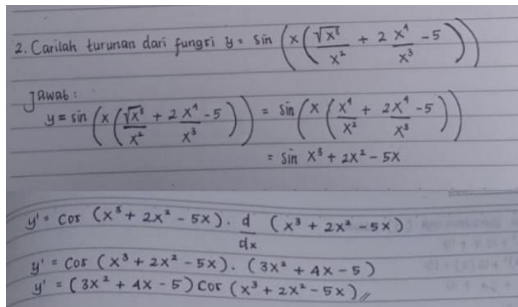 2. Carilah turunan dari fungsi y = sin (x (√x⁸/x² + 2 x⁴/x³ - 5))
Jawab :
y = sin (x (√x⁸/x² + 2 x⁴/x³ - 5)) = sin (x (x⁴/x² + 2x⁴/x³ - 5))
= sin x³ + 2x² - 5x
y' = cos (x³ + 2x² - 5x) . d/dx (x³ + 2x² - 5x)
y' = cos (x³ + 2x² - 5x) . (3x² + 4x - 5)
y' = (3x² + 4x - 5) cos (x³ + 2x² - 5x) //